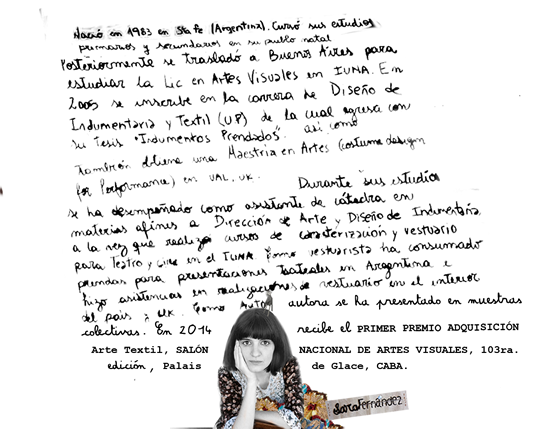 Nació en 1983 en Sta fe (Argentina). Cursó sus estudios
primarios y secundarios en su pueblo natal
Posteriormente se trasladó a Buenos Aires para
estudiar la Lic en Artes Visuales en IUNA. En
2005 se inscribe en la carrera de Diseño de
Indumentaria y Textil (UP) de la cual egresa con
su Tesis "Indumentos Prendados". así como
también obtiene una Maestría en Artes (costume design
for Performance) en UAL, UK. Durante sus estudios
se ha desempeñado como asistente de cátedra en
materias afines a Dirección de Arte y Diseño de Indumentaria
a la vez que realizó cursos de caracterización y vestuario
para Teatro y Cine en el IUNA. Como vestuarista ha consumado
prendas para presentaciones teatrales en Argentina e
hizo asistencias en realizaciones de vestuario en el interior
del país y UK. Como autora se ha presentado en muestras
colectivas. En 2014 recibe el PRIMER PREMIO ADQUISICIÓN
Arte Textil, SALÓN NACIONAL DE ARTES VISUALES, 103ra.
edición, Palais de Glace, CABA.
Sara Fernández